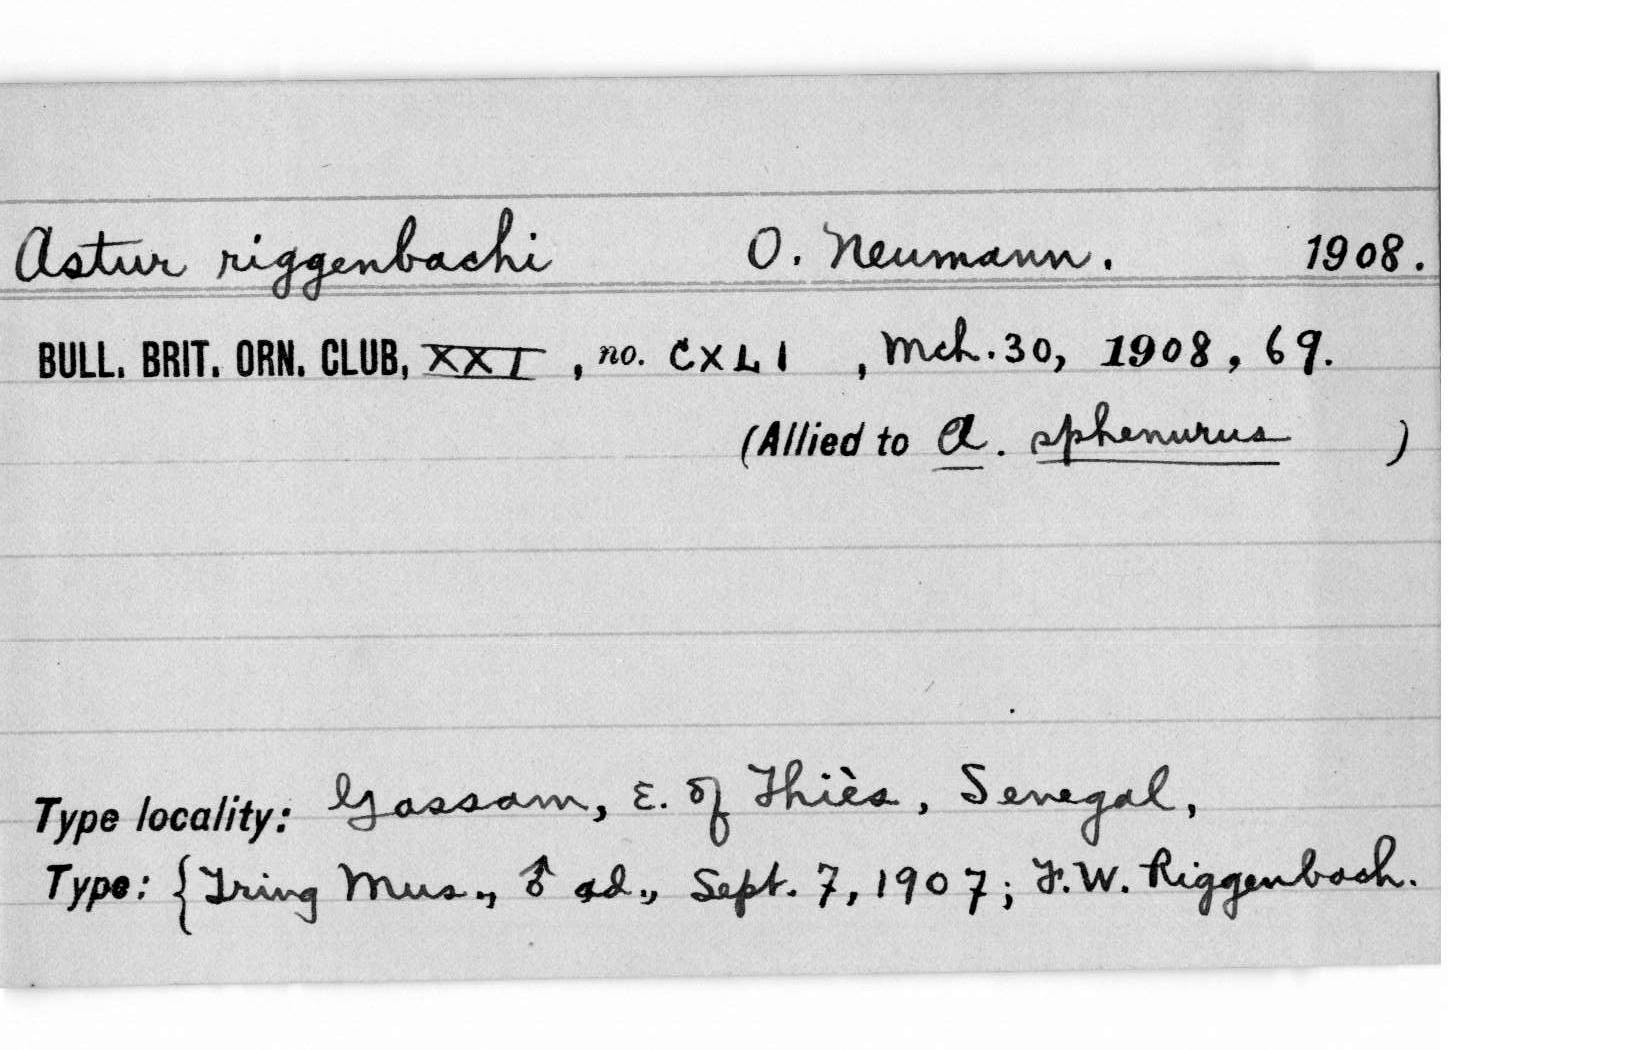 Astur riggenbachi O. Neumann. 1908.
BULL. BRIT. ORN. CLUB, XXI, no. CXLI, Mch. 30, 1908, 69.
(Allied to A. sphenurus)
Type locality: Gassam, E. of Thiès, Senegal,
Type: {Tring Mus., ♂ ad., Sept. 7, 1907; F.W. Riggenbach.